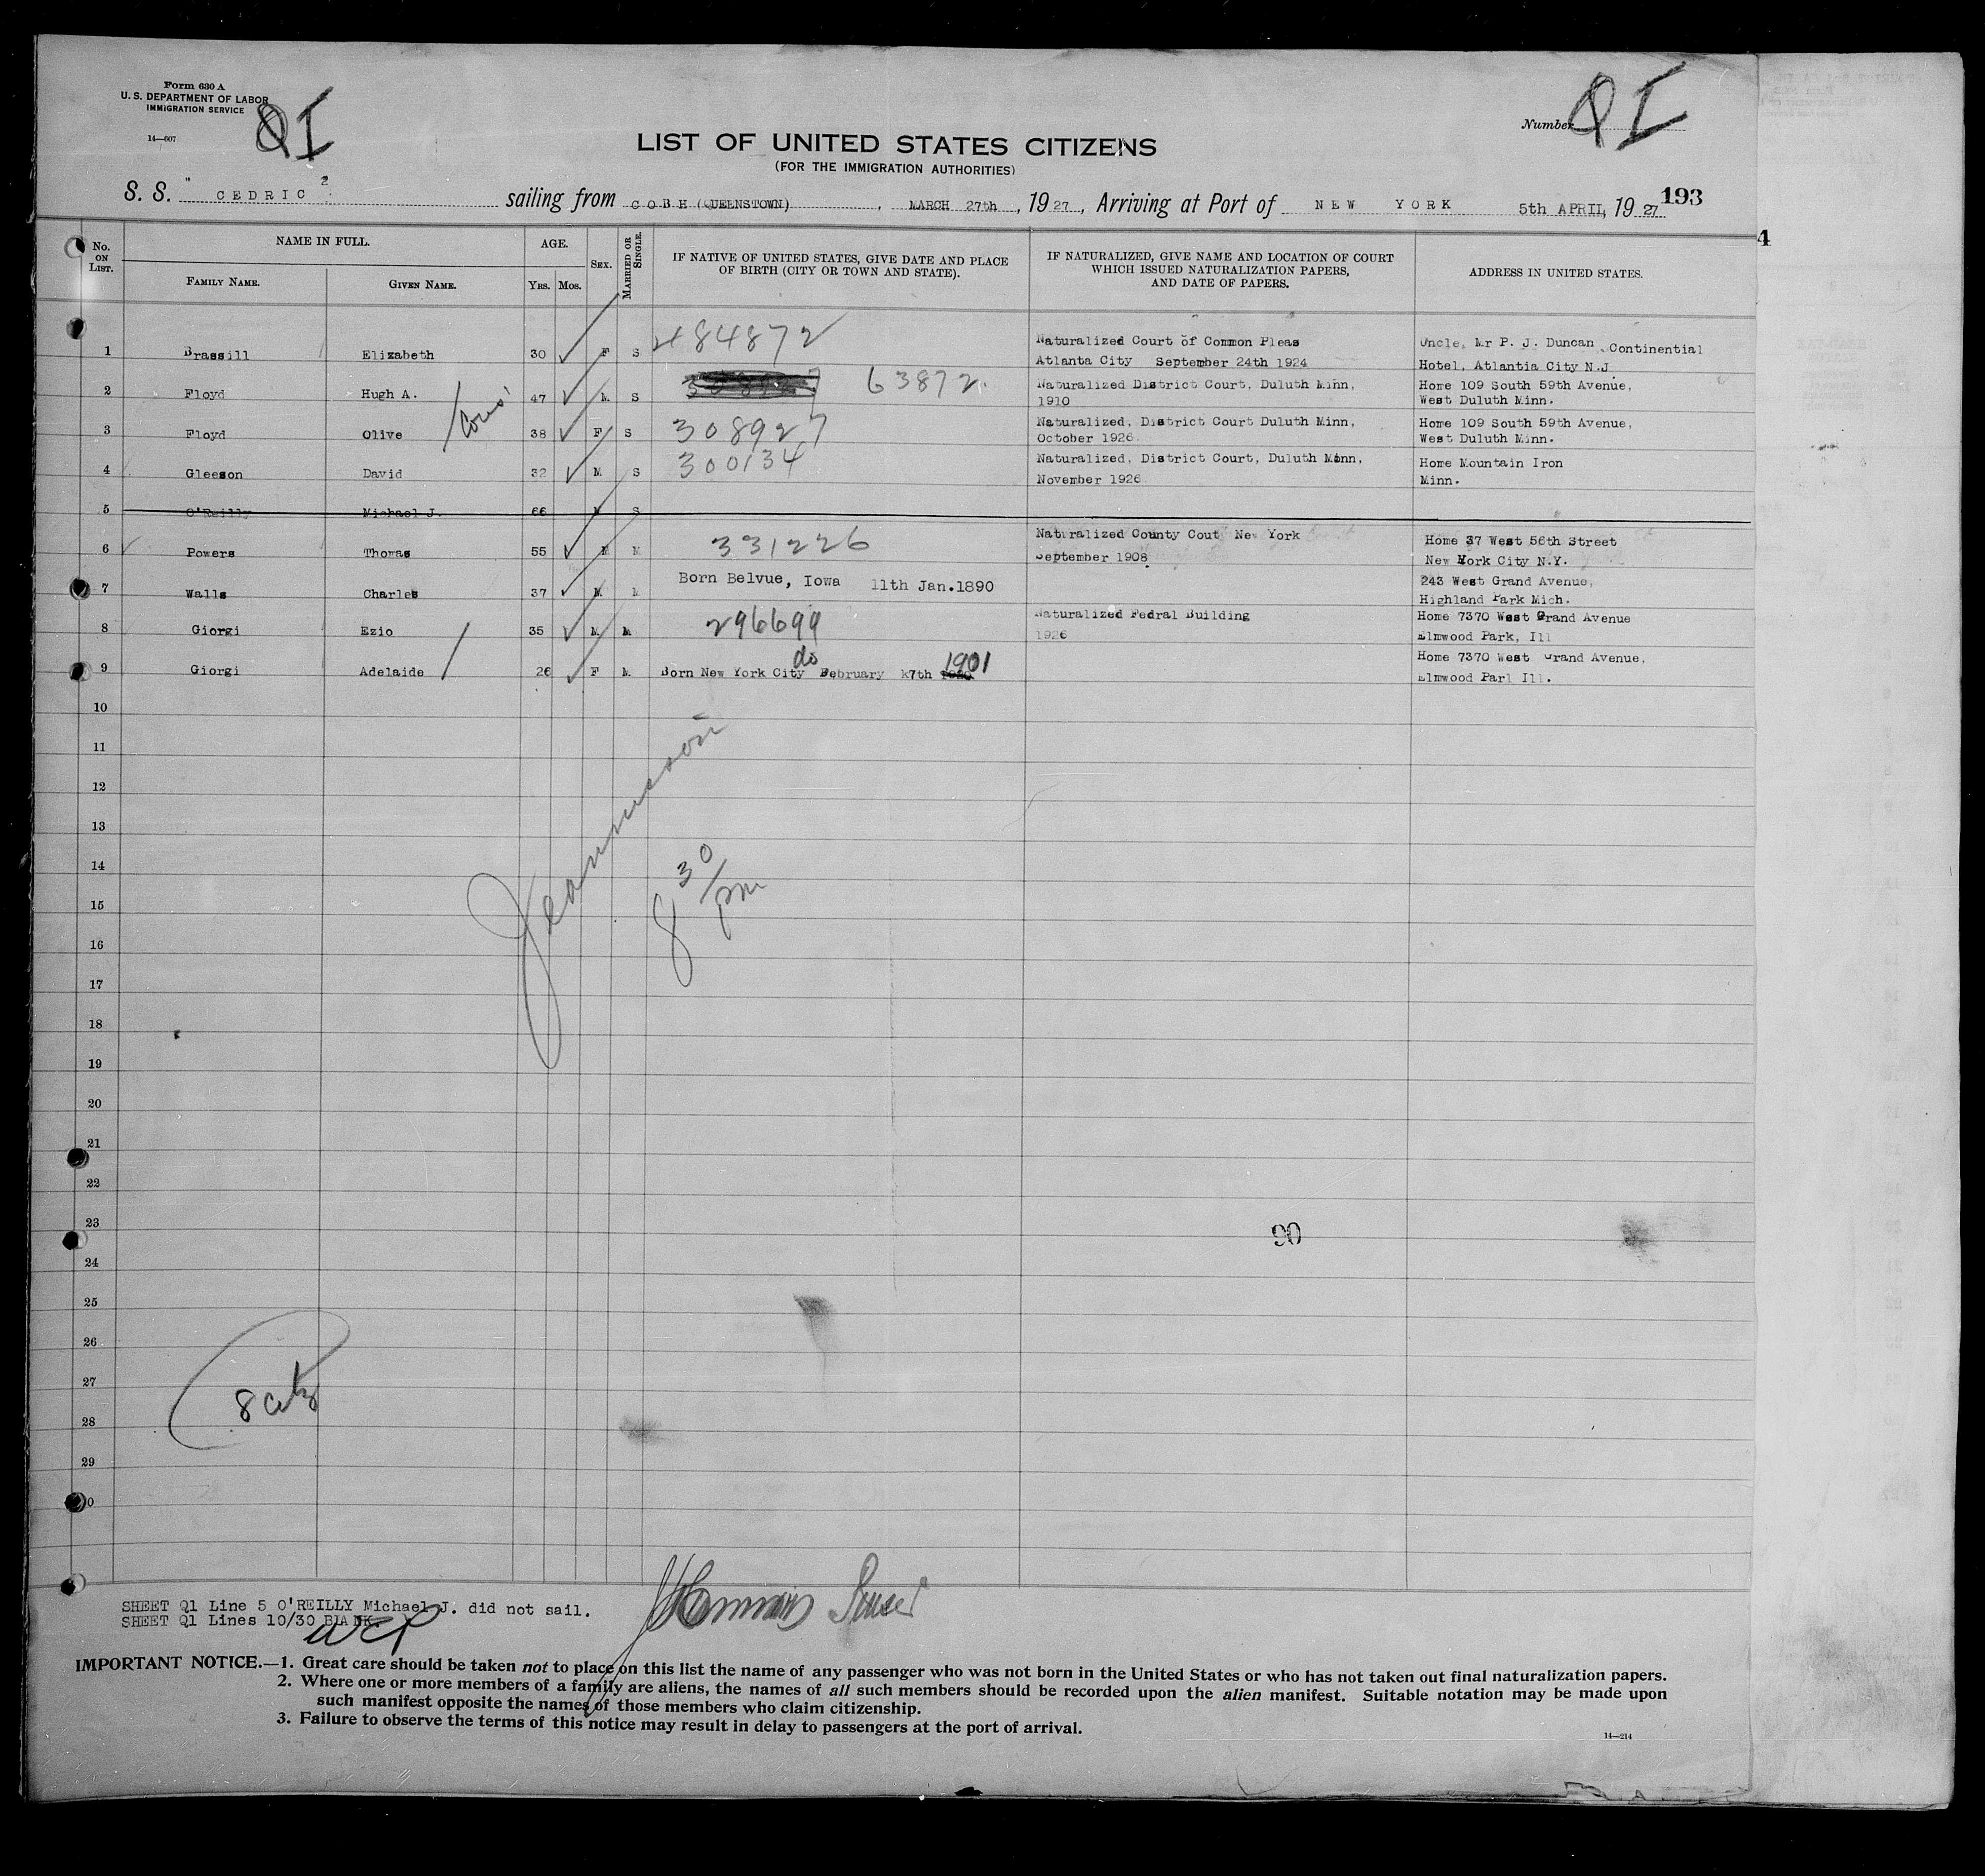 Form 630 A
U. S. DEPARTMENT OF LABOR
IMMIGRATION SERVICE
14—607
QI
Number QI
LIST OF UNITED STATES CITIZENS
(FOR THE IMMIGRATION AUTHORITIES)
S. S. " CEDRIC " sailing from COBH (QUEENSTOWN), MARCH 27th, 1927, Arriving at Port of NEW YORK 5th APRIL, 1927
193
4
No. ON LIST. NAME IN FULL. AGE. SEX. MARRIED OR SINGLE. IF NATIVE OF UNITED STATES, GIVE DATE AND PLACE OF BIRTH (CITY OR TOWN AND STATE). IF NATURALIZED, GIVE NAME AND LOCATION OF COURT WHICH ISSUED NATURALIZATION PAPERS, AND DATE OF PAPERS. ADDRESS IN UNITED STATES.
FAMILY NAME. GIVEN NAME. YRS. MOS.
1 Brassill Elizabeth 30 F S 484872 Naturalized Court of Common Pleas Uncle, Mr P. J. Duncan, Continential
Atlanta City September 24th 1924 Hotel, Atlantia City N.J.
2 Floyd Hugh A. 47 M. S 63872. Naturalized District Court, Duluth Minn, Home 109 South 59th Avenue,
1910 West Duluth Minn.
3 Floyd Olive 38 F S 308927 Naturalized, District Court Duluth Minn, Home 109 South 59th Avenue,
October 1926 West Duluth Minn.
4 Gleeson David 32 M. S 300134 Naturalized, District Court, Duluth Minn, Home Mountain Iron
November 1926 Minn.
5 O'Reilly Michael J. 66 M S
6 Powers Thomas 55 M M 331226 Naturalized County Cout New York Home 37 West 56th Street
September 1908 New York City N.Y.
7 Walls Charles 37 M. M Born Belvue, Iowa 11th Jan.1890 243 West Grand Avenue,
Highland Park Mich.
8 Giorgi Ezio 35 M. M 296699 Naturalized Fedral Building Home 7370 West Grand Avenue
1926 Elmwood Park, Ill
9 Giorgi Adelaide 26 F M. do Born New York City February 7th 1901 Home 7370 West Grand Avenue,
Elmwood Parl Ill.
10
11
12
13
14
15
16
17
18
19
20
21
22
23
24
25
26
27
28
29
0
8 30 pm
90
SHEET Q1 Line 5 O'REILLY Michael J. did not sail.
SHEET Q1 Lines 10/30 BLANK.
IMPORTANT NOTICE.—1. Great care should be taken not to place on this list the name of any passenger who was not born in the United States or who has not taken out final naturalization papers.
2. Where one or more members of a family are aliens, the names of all such members should be recorded upon the alien manifest. Suitable notation may be made upon
such manifest opposite the names of those members who claim citizenship.
3. Failure to observe the terms of this notice may result in delay to passengers at the port of arrival.
14—214